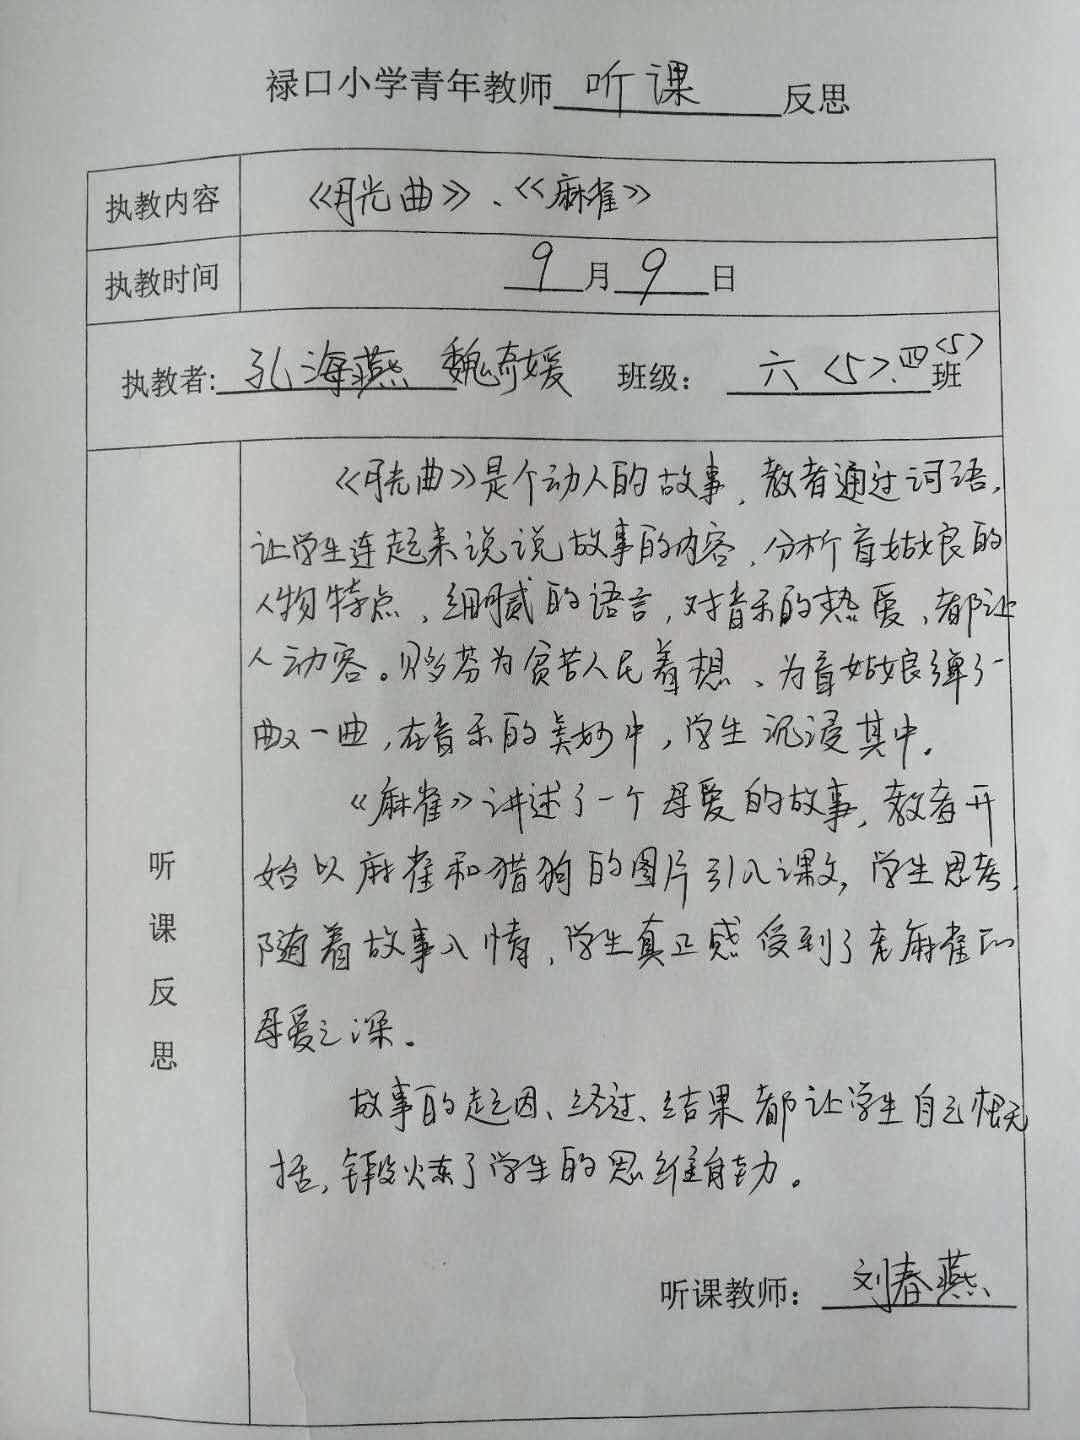 禄口小学青年教师 听课 反思
执教内容 《月光曲》、《麻雀》
执教时间 9月9日
执教者: 孔海燕 魏奇媛 班级： 六〈5〉.四〈5〉班
《月光曲》是个动人的故事，教者通过词语，
让学生连起来说说故事的内容，分析盲姑娘的
人物特点，细腻的语言，对音乐的热爱，都让
人动容。贝多芬为贫苦人民着想、为盲姑娘弹了一
曲又一曲，在音乐的美妙中，学生沉浸其中。
《麻雀》讲述了一个母爱的故事，教者开
始以麻雀和猎狗的图片引入课文，学生思考，
随着故事入情，学生真正感受到了老麻雀的
母爱之深。
故事的起因、经过、结果都让学生自己概
括，锻炼了学生的思维能力。
听课反思
听课教师： 刘春燕